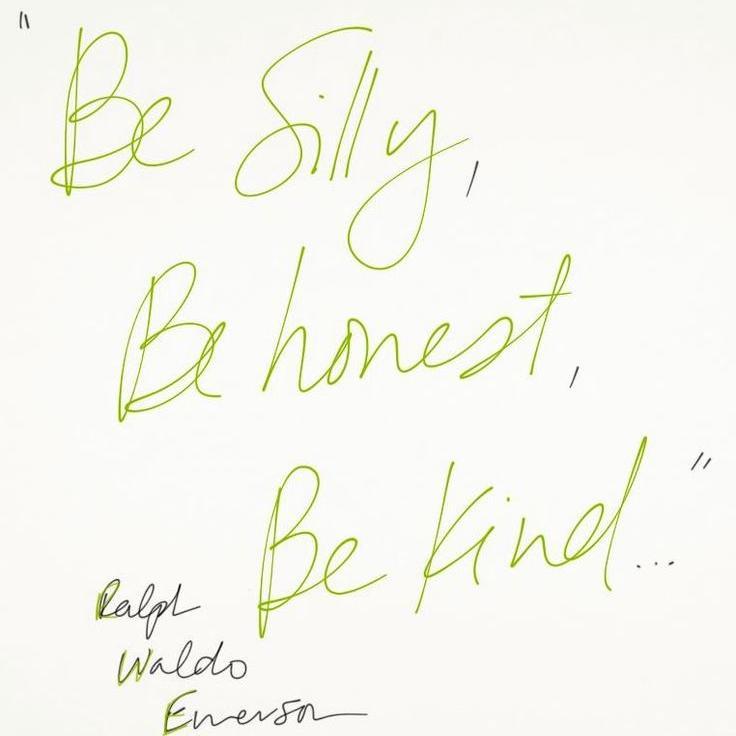 "Be Silly,
Be honest,
Be Kind..."
Ralph
Waldo
Emerson